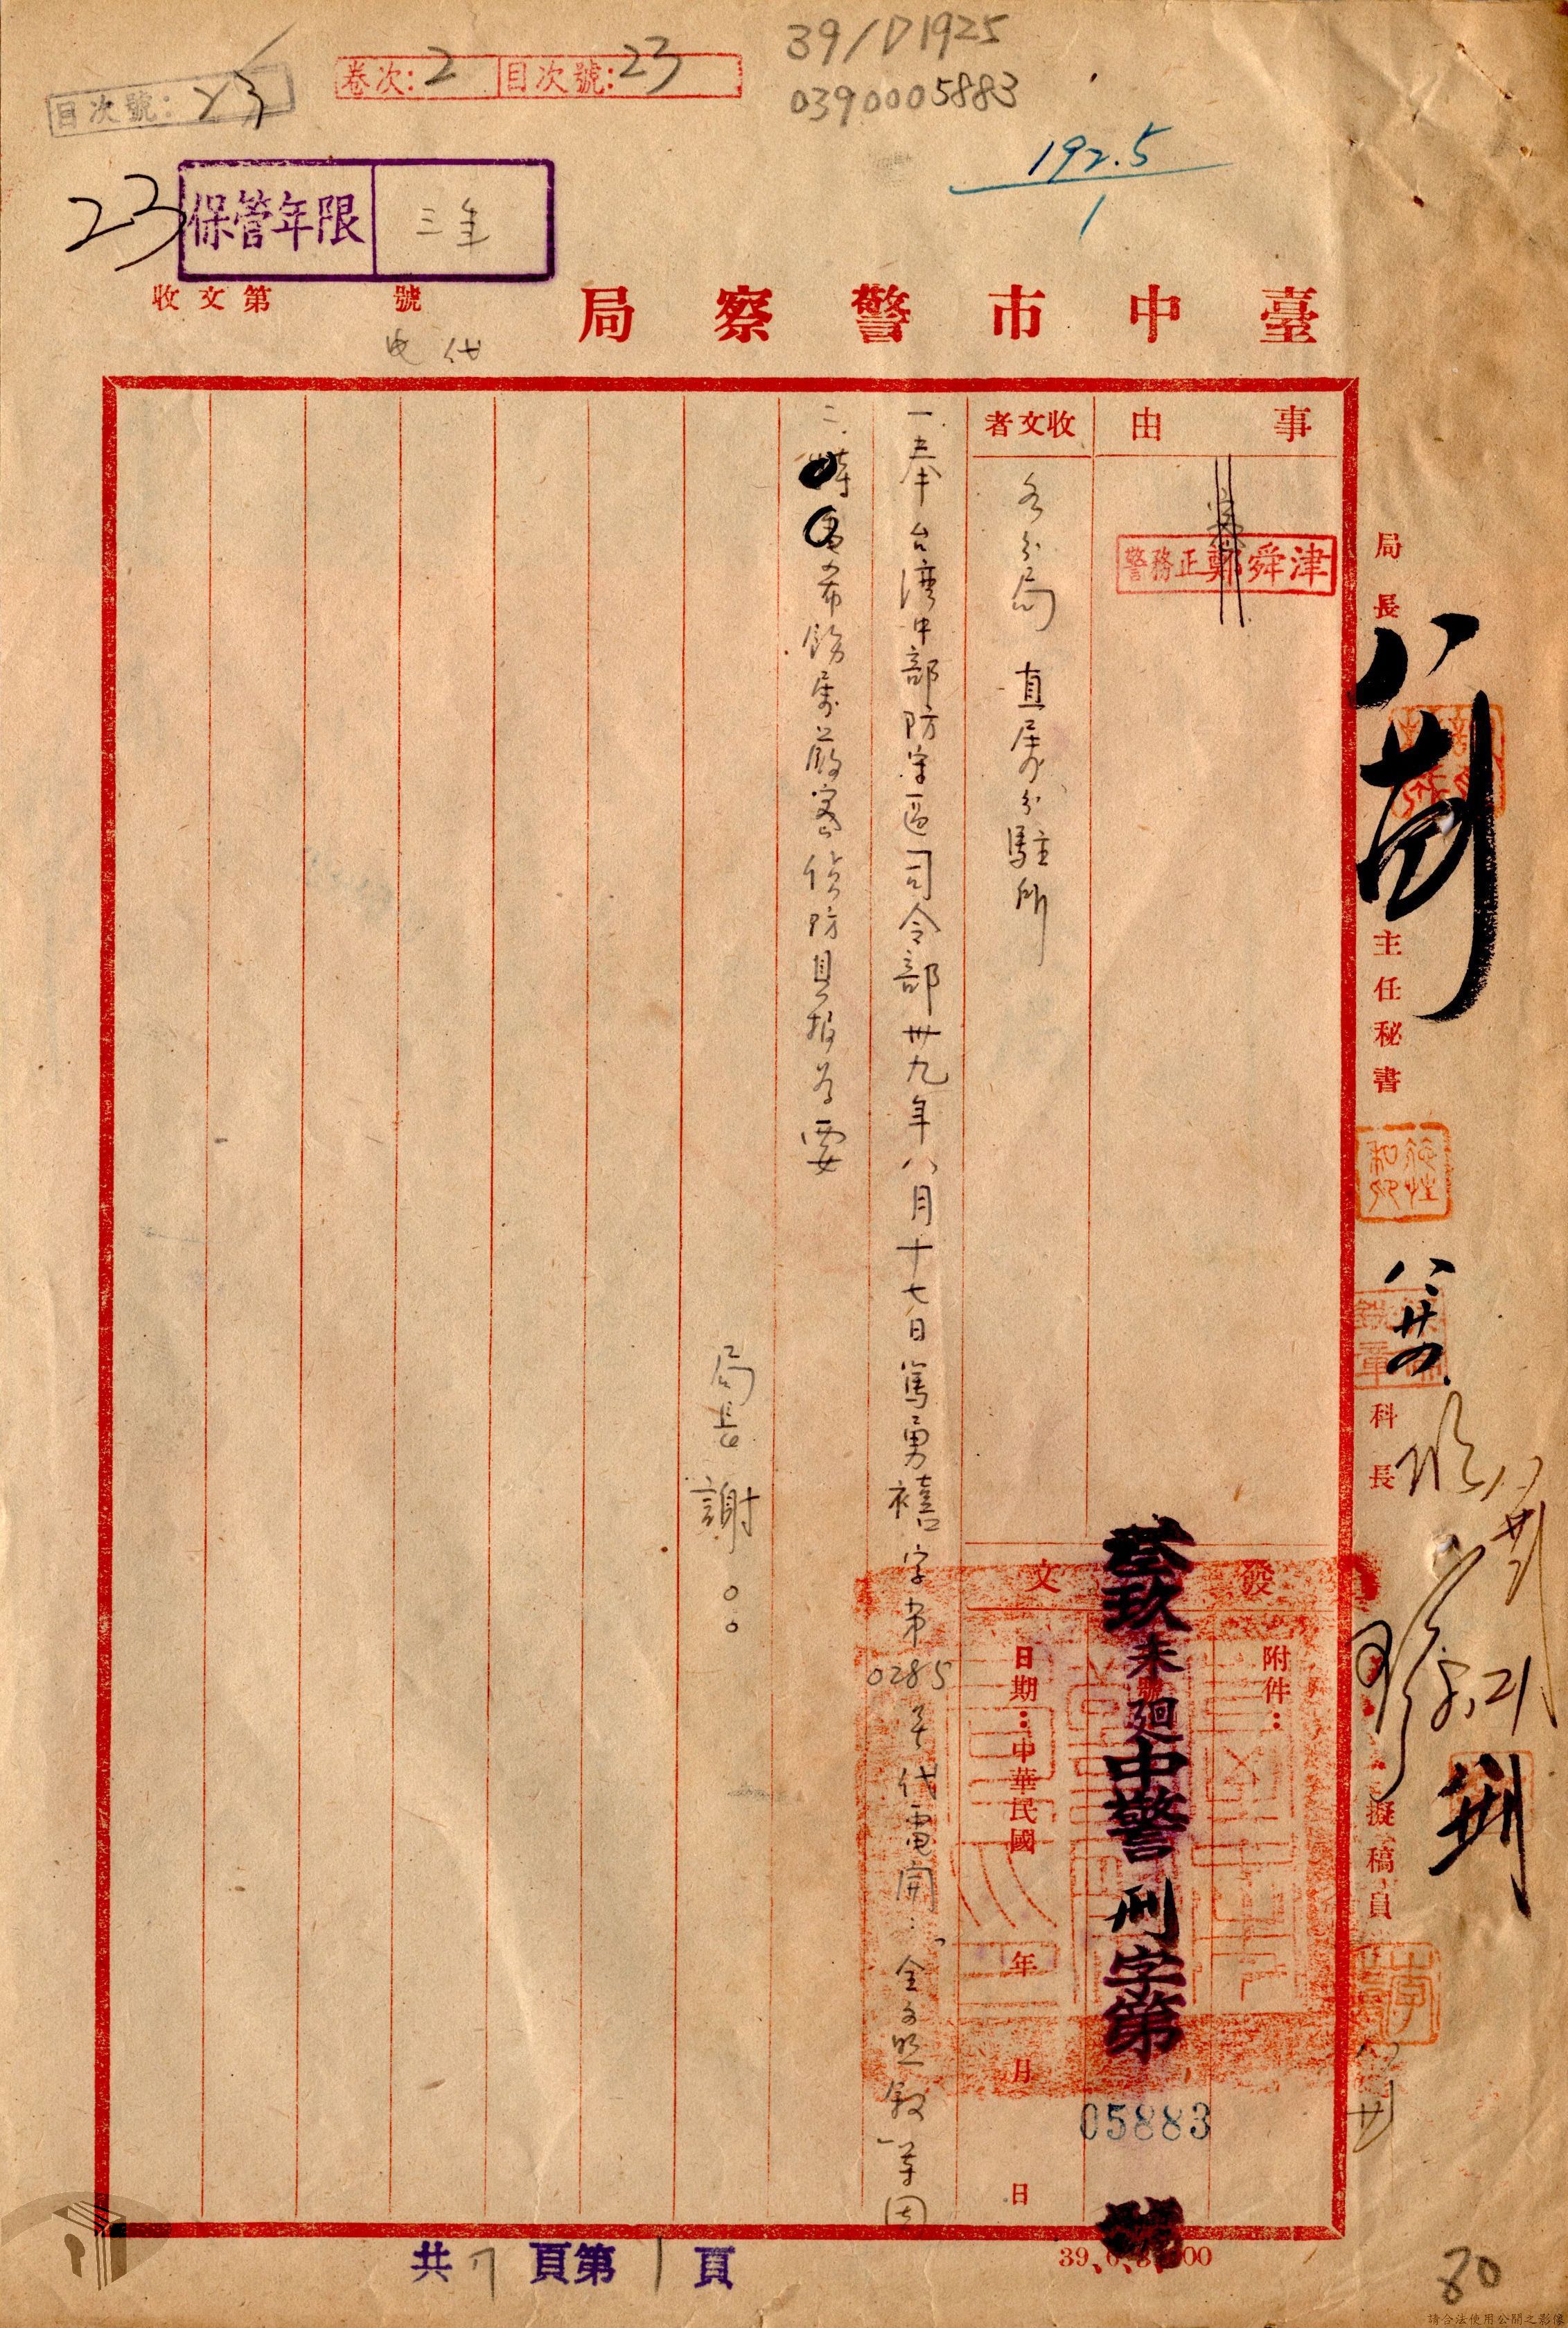 39/D1925
0390005883
卷次:2 目次號:23
目次號:23
192.5
1
23
保管年限 三年
臺中市警察局
收文第 號
代电
事由
警務正鄭舜津
收文者
各分局 直属分駐所
發文
附件:
叁玖未迴中警刑字第05883號
日期:中華民國 年 月 日
一.奉台湾中部防守區司令部卅九年八月十七日篤勇禧字第0285号代電開:「全文照叙」等因
二.特電希飭属嚴密偵防具報为要
局長 謝○○
局長
主任秘書
科長
擬稿員
8.21
共 頁第1頁
80
請合法使用公開之影像